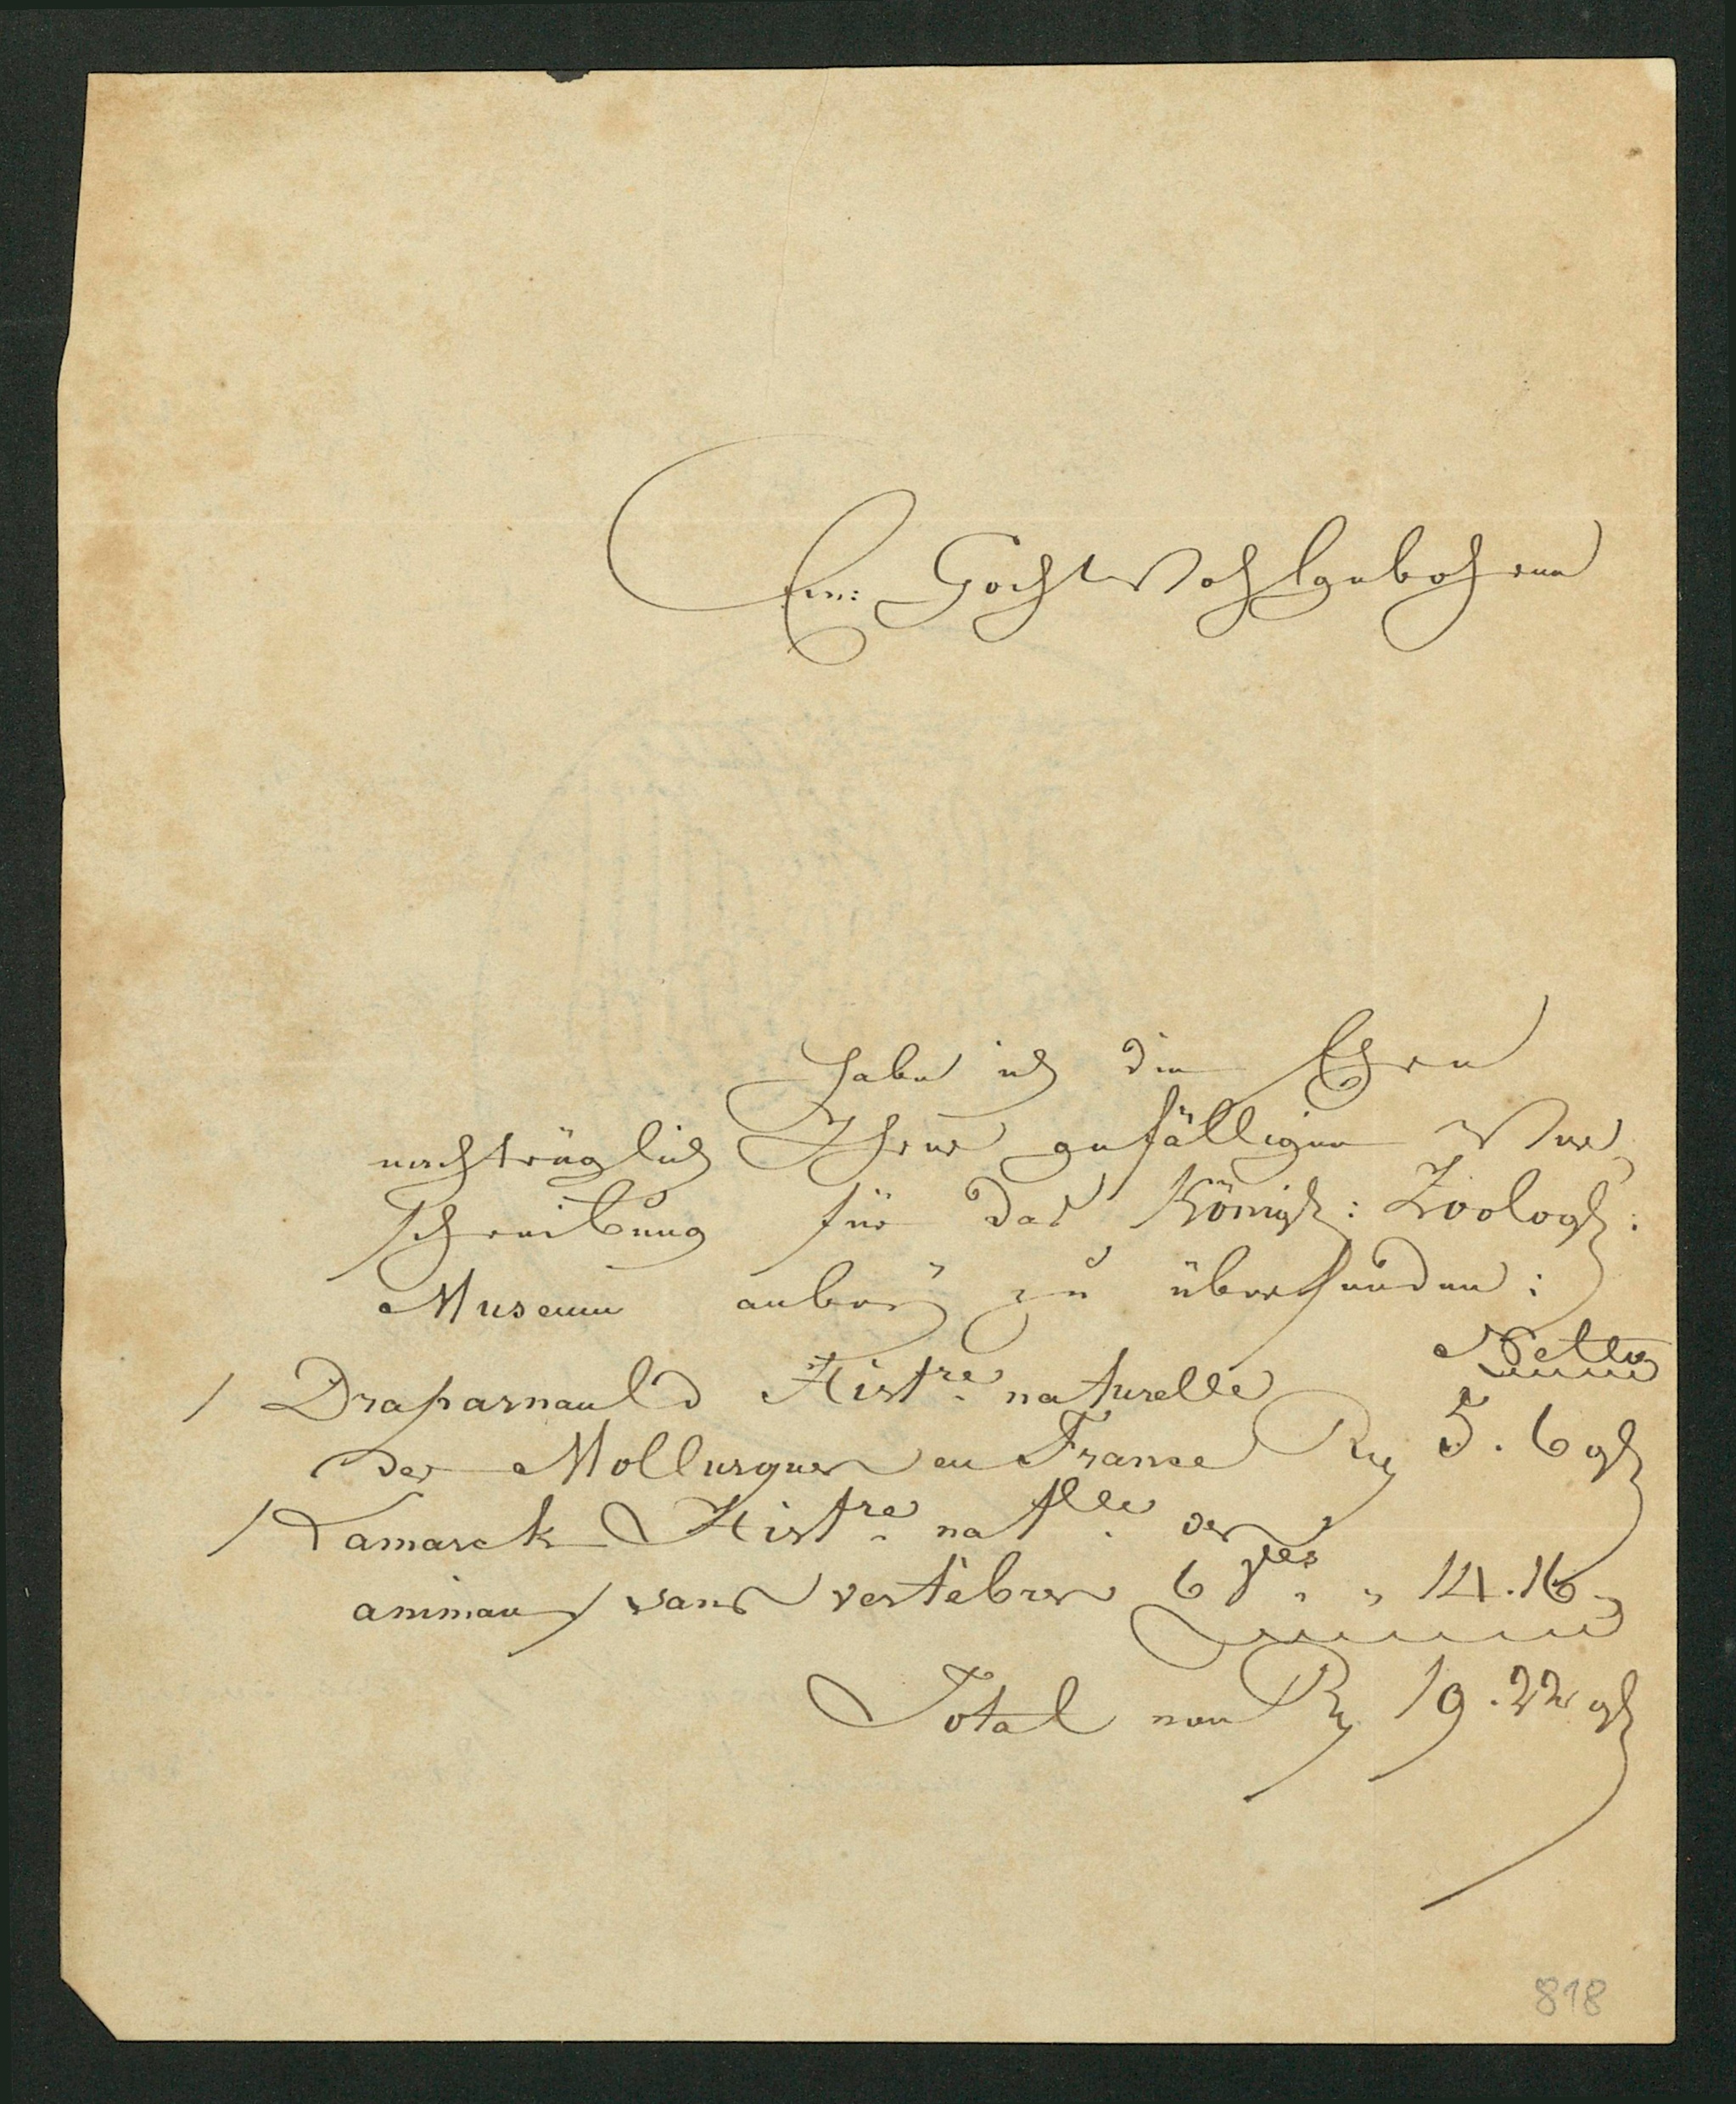 Ew: HochWohlgebohren
habe ich die Ehre
nachträglich Ihrer gefälligen Ver
schreibung für das Königl: Zoolog:
Museum anbey zu übersenden:
Netto
1 Draparnauld Histre. naturelle
des Mollusques en France R 5. 6 g
1 Lamarck Histre. natlle. des
animaux sans vertèbres 6 Vles „ 14.16 „
Total von R 19.22 g
818